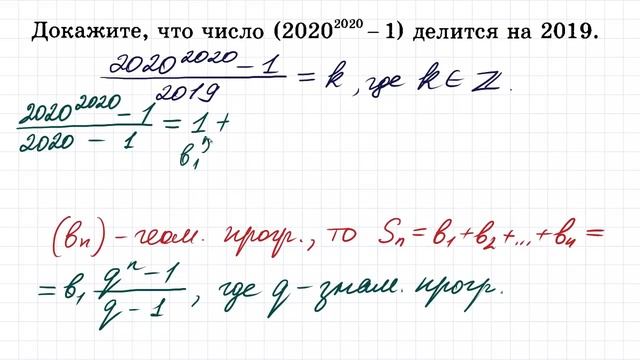 Докажите, что число (2020²⁰²⁰ – 1) делится на 2019.
(2020²⁰²⁰ – 1)/2019 = k, где k ∈ ℤ.
(2020²⁰²⁰ – 1)/(2020 – 1) = 1 +
b₁
(bₙ) – геом. прогр., то Sₙ = b₁ + b₂ + ... + bₙ =
= b₁ (qⁿ – 1)/(q – 1), где q – знам. прогр.